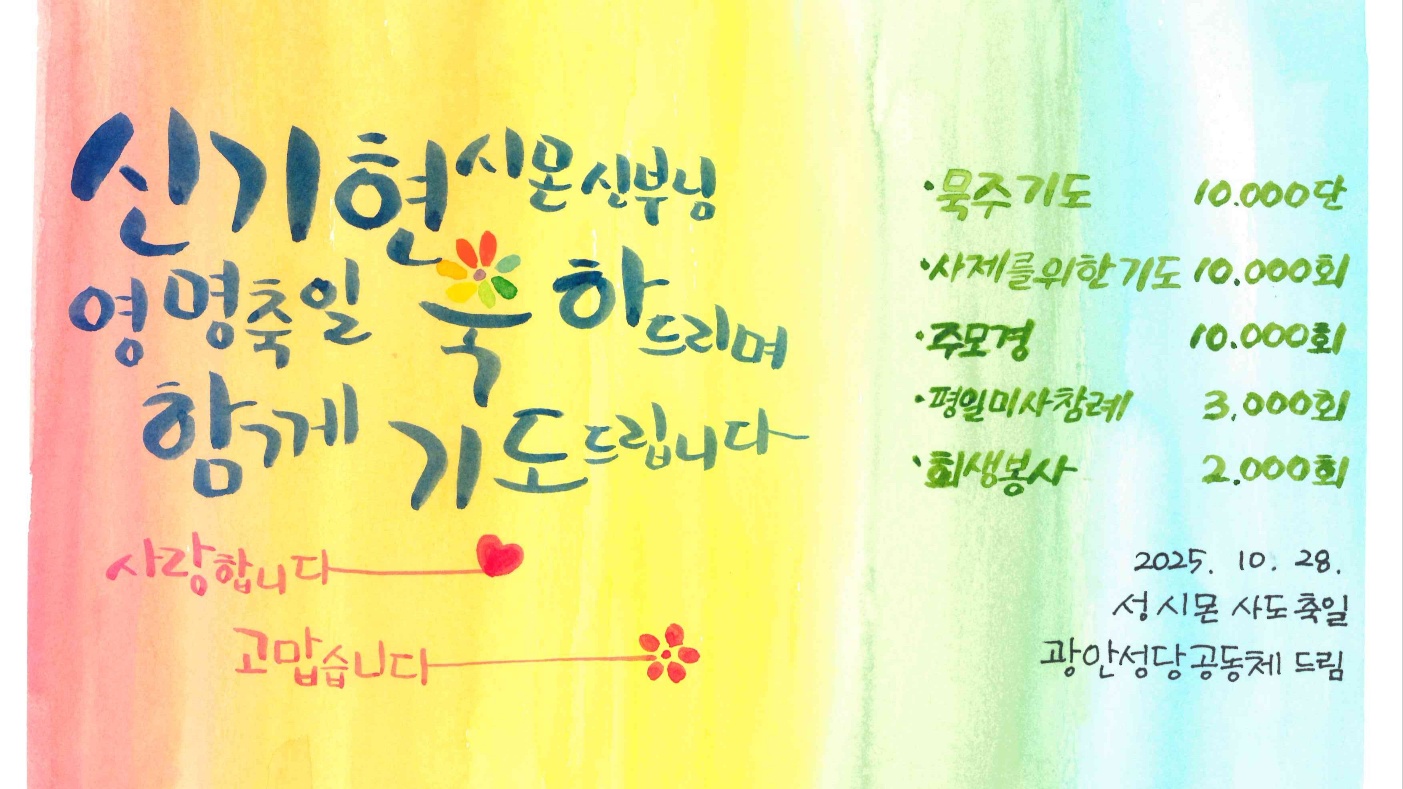 신기현 시몬 신부님
영명축일 축하드리며
함께 기도드립니다
사랑합니다
고맙습니다
·묵주기도 10.000단
·사제를위한기도 10.000회
·주모경 10.000회
·평일미사참례 3,000회
·희생봉사 2.000회
2025. 10. 28.
성 시몬 사도 축일
광안성당공동체 드림